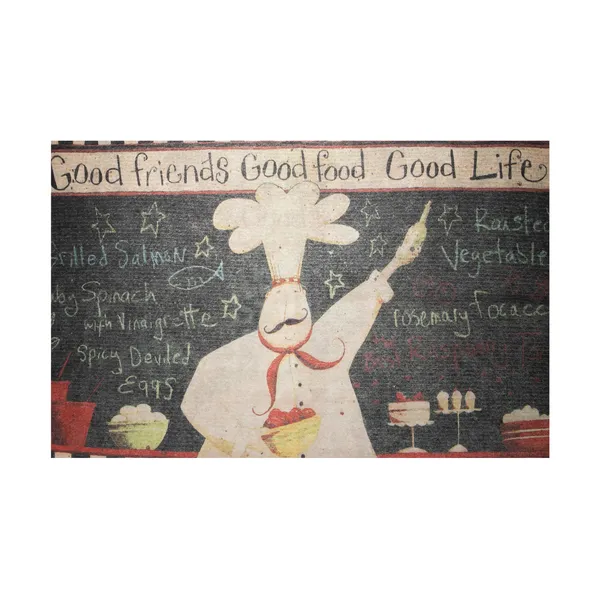 Good friends Good food Good Life
Grilled Salmon
Baby Spinach
with Vinaigrette
Spicy Deviled
Eggs
Roasted
Vegetable
rosemary Focacc